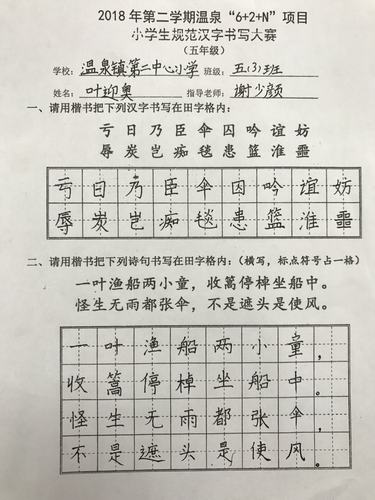 2018 年第二学期温泉“6+2+N”项目
小学生规范汉字书写大赛
（五年级）
学校：温泉镇第二中心小学 班级：五(3)班
姓名：叶迎奥 指导老师：谢少颜
一、请用楷书把下列汉字书写在田字格内：
亏 日 乃 臣 伞 囚 吟 谊 妨
辱 炭 岂 痴 毯 患 篮 淮 噩
亏日乃臣伞囚吟谊妨
辱炭岂痴毯患篮淮噩
二、请用楷书把下列诗句书写在田字格内：（横写，标点符号占一格）
一叶渔船两小童，收篙停棹坐船中。
怪生无雨都张伞，不是遮头是使风。
一叶渔船两小童，
收篙停棹坐船中。
怪生无雨都张伞，
不是遮头是使风。